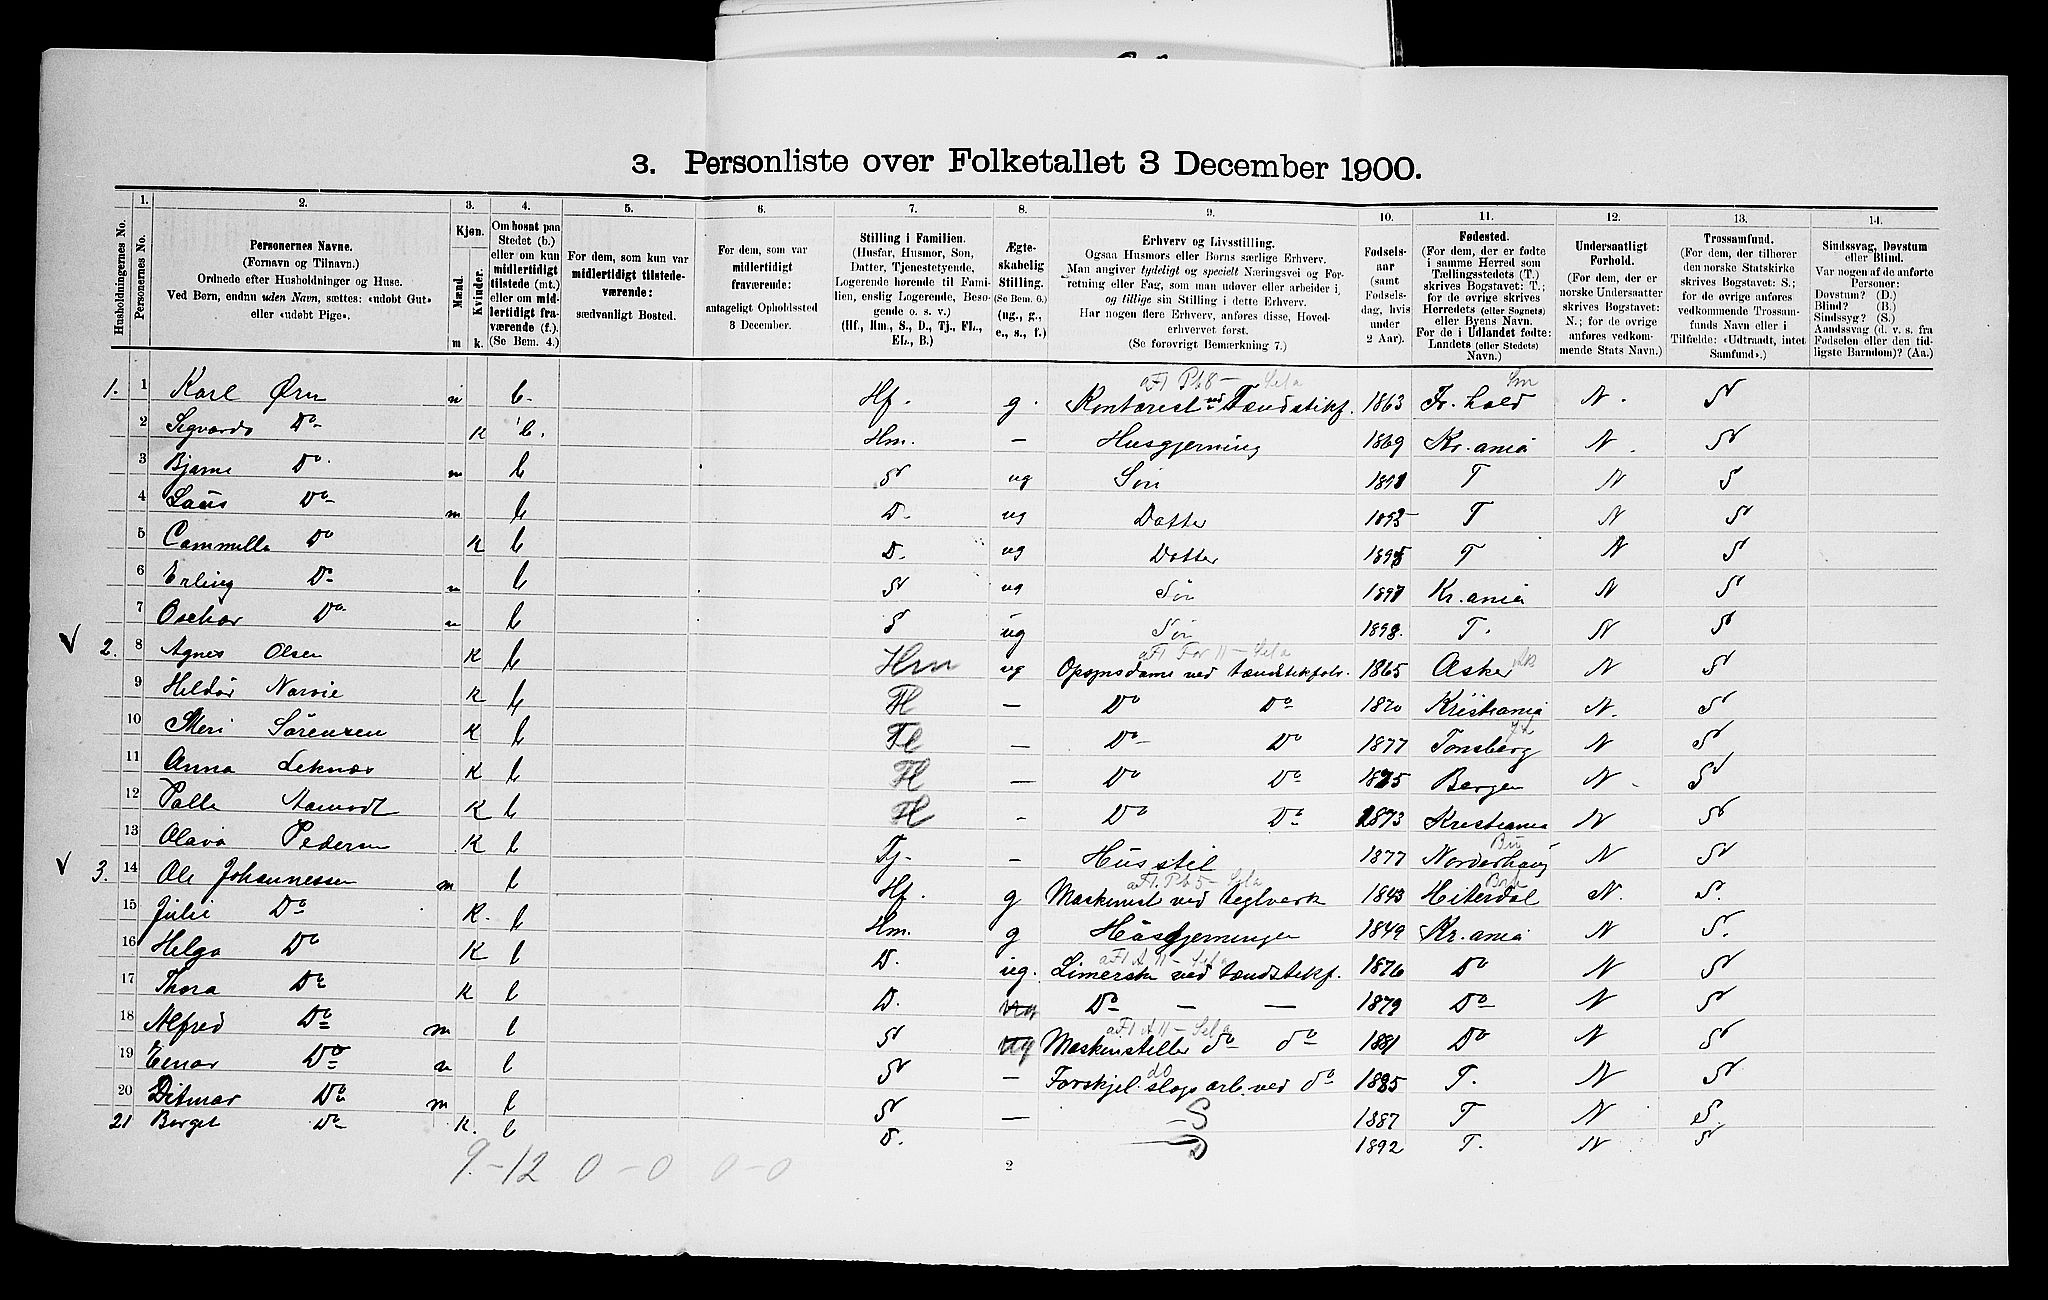 3. Personliste over Folketallet 3 December 1900.
Husholdningernes No.
1. Personernes No.
2. Personernes Navne.
(Fornavn og Tilnavn.)
Ordnede efter Husholdninger og Huse.
Ved Børn, endnu uden Navn, sættes: «udøbt Gut»
eller «udøbt Pige».
3. Kjøn.
Mænd. Kvinder.
m k.
4. Om bosat paa
Stedet (b.)
eller om kun
midlertidigt
tilstede (mt.)
eller om mid-
lertidigt fra-
værende (f.).
(Se Bem. 4.)
5. For dem, som kun var
midlertidigt tilstede-
værende:
sædvanligt Bosted.
6. For dem, som var
midlertidigt
fraværende:
antageligt Opholdssted
3 December.
7. Stilling i Familien.
(Husfar, Husmor, Søn,
Datter, Tjenestetyende,
Logerende hørende til Fami-
lien, enslig Logerende, Besø-
gende o. s. v.)
(Hf., Hm., S., D., Tj., FL.,
EL., B.)
8. Ægte-
skabelig
Stilling.
(Se Bem. 6.)
(ug., g.,
e., s., f.)
9. Erhverv og Livsstilling.
Ogsaa Husmors eller Børns særlige Erhverv.
Man angiver tydeligt og specielt Næringsvei og For-
retning eller Fag, som man udøver eller arbeider i,
og tillige sin Stilling i dette Erhverv.
Har nogen flere Erhverv, anføres disse, Hoved-
erhvervet først.
(Se forøvrigt Bemerkning 7.)
10. Fødsels-
aar
(samt
Fødsels-
dag, hvis
under
2 Aar).
11. Fødested.
(For dem, der er fødte
i samme Herred som
Tællingsstedets (T.)
skrives Bogstavet: T.;
for de øvrige skrives
Herredets (eller Sognets)
eller Byens Navn.
For de i Udlandet fødte:
Landets (eller Stedets)
Navn.)
12. Undersaatligt
Forhold.
(For dem, der er
norske Undersaatter
skrives Bogstavet:
N.; for de øvrige
anføres vedkom-
mende Stats Navn.)
13. Trossamfund.
(For dem, der tilhører
den norske Statskirke
skrives Bogstavet: S.;
for de øvrige anføres
vedkommende Trossam-
funds Navn eller i
Tilfælde: «Udtraadt, intet
Samfund».)
14. Sindssvag, Døvstum
eller Blind.
Var nogen af de anførte
Personer:
Døvstum? (D.)
Blind? (B.)
Sindssyg? (S.)
Aandssvag (d. v. s. fra
Fødselen eller den tid-
ligste Barndom)? (Aa.)
1. 1 Karl Ørn m b. Hf. g. Kontorist ved Tændstikf. 1863 Fr. hald N. S
2 Do k b. Hm. — Husgjerning 1869 Kr.ania N. S
3 Bjarne Do m b S ug Søn 1891 T N S
4 Do m b D. ug Datter T N S
5 Cammilla Do K b D. ug Datter 1895 T N S
6 Erling Do m b S ug Søn 1897 Kr.ania N S
7 Oschar Do m b S ug Søn 1898. T. N S
2. 8 Agnes Olsen K b Hm ug Opsynsdame ved tændstikfabr. 1865 Asker N S
9 K b Fl — Do Do 1870 Kristiania N. S
10 Meri Sørensen K b Fl — Do Do 1877 Tønsberg N S
11 Anna Leknæs K b Fl — Do Do 1875 Bergen N S
12 Palle Aamodt K b Fl — Do Do 1873 Kristiania N S
13 Olava Pedersen K b Tj. — Husstil 1877 Norderhaug N S
3. 14 Ole Johannessen m b Hf. g Maskinist ved teglverk 1843 Hiterdal N. S.
15 Julie Do K. b Hm. g Husgjerningen 1849 Kr.ania N S.
16 Helga Do K b D. ug. Limerske ved tændstikf. 1876 Do N S
17 Thora Do K b D. ug Do — — 1879 Do N S
18 Alfred Do m b S ug Maskinstiller do do 1881 Do N S
19 Einar Do m b S — Forskjel. slags arb. ved do 1885 T. N S
20 Ditmar Do m b S — S 1887 T N S.
21 Borget Do K. b D. D 1892 T. N. S
9.-12 0-0 0-0
2